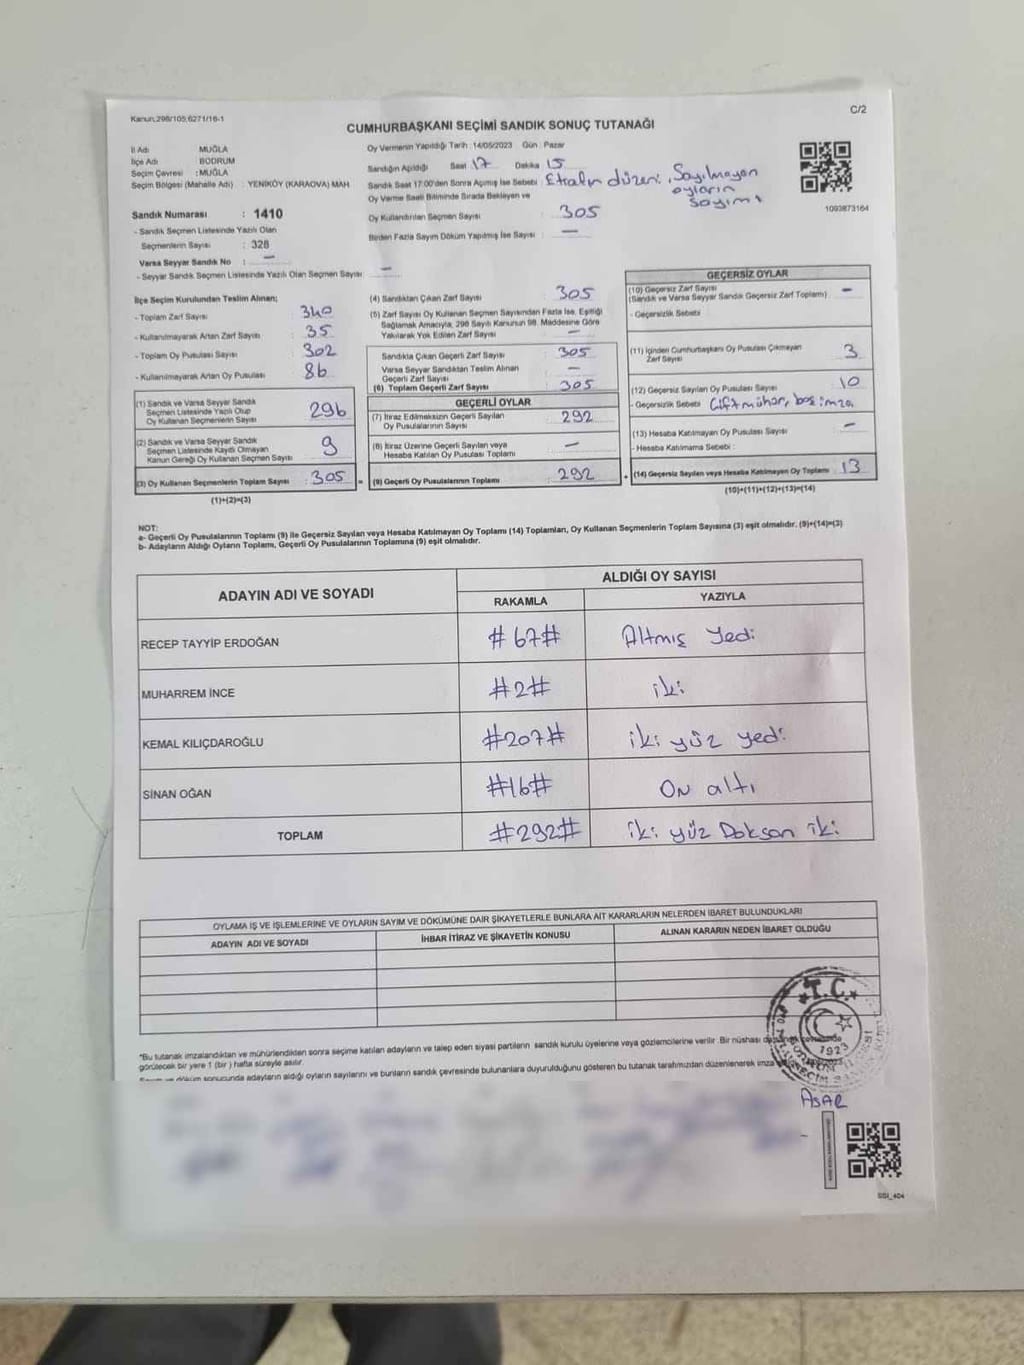 Kanun:298/105;6271/16-1
C/2
CUMHURBAŞKANI SEÇİMİ SANDIK SONUÇ TUTANAĞI
İl Adı : MUĞLA
İlçe Adı : BODRUM
Seçim Çevresi : MUĞLA
Seçim Bölgesi (Mahalle Adı) : YENİKÖY (KARAOVA) MAH
Sandık Numarası : 1410
- Sandık Seçmen Listesinde Yazılı Olan
Seçmenlerin Sayısı : 328
Varsa Seyyar Sandık No : —
- Seyyar Sandık Seçmen Listesinde Yazılı Olan Seçmen Sayısı : —
Oy Vermenin Yapıldığı Tarih : 14/05/2023 Gün : Pazar
Sandığın Açıldığı Saat 17 Dakika 15
Sandık Saat 17:00'den Sonra Açılmış İse Sebebi : Etrafın düzeni, Sayılmayan oyların sayımı
Oy Verme Saati Bitiminde Sırada Bekleyen ve
Oy Kullandırılan Seçmen Sayısı : 305
Birden Fazla Sayım Döküm Yapılmış İse Sayısı : —
1093873164
İlçe Seçim Kurulundan Teslim Alınan;
- Toplam Zarf Sayısı : 340
- Kullanılmayarak Artan Zarf Sayısı : 35
- Toplam Oy Pusulası Sayısı : 302
- Kullanılmayarak Artan Oy Pusulası : 86
(1) Sandık ve Varsa Seyyar Sandık
Seçmen Listesinde Yazılı Olup
Oy Kullanan Seçmenlerin Sayısı : 296
(2) Sandık ve Varsa Seyyar Sandık
Seçmen Listesinde Kayıtlı Olmayan
Kanun Gereği Oy Kullanan Seçmen Sayısı : 9
(3) Oy Kullanan Seçmenlerin Toplam Sayısı : 305 =
(1)+(2)=(3)
(4) Sandıktan Çıkan Zarf Sayısı : 305
(5) Zarf Sayısı Oy Kullanan Seçmen Sayısından Fazla İse, Eşitliği
Sağlamak Amacıyla, 298 Sayılı Kanunun 98. Maddesine Göre
Yakılarak Yok Edilen Zarf Sayısı : —
Sandıkta Çıkan Geçerli Zarf Sayısı : 305
Varsa Seyyar Sandıktan Teslim Alınan
Geçerli Zarf Sayısı : —
(6) Toplam Geçerli Zarf Sayısı : 305
GEÇERLİ OYLAR
(7) İtiraz Edilmeksizin Geçerli Sayılan
Oy Pusulalarının Sayısı : 292
(8) İtiraz Üzerine Geçerli Sayılan veya
Hesaba Katılan Oy Pusulası Toplamı : —
(9) Geçerli Oy Pusulalarının Toplamı : 292 +
GEÇERSİZ OYLAR
(10) Geçersiz Zarf Sayısı
(Sandık ve Varsa Seyyar Sandık Geçersiz Zarf Toplamı) : —
- Geçersizlik Sebebi :
(11) İçinden Cumhurbaşkanı Oy Pusulası Çıkmayan
Zarf Sayısı : 3
(12) Geçersiz Sayılan Oy Pusulası Sayısı : 10
- Geçersizlik Sebebi : Çift mühür, boş imza
(13) Hesaba Katılmayan Oy Pusulası Sayısı : —
- Hesaba Katılmama Sebebi :
(14) Geçersiz Sayılan veya Hesaba Katılmayan Oy Toplamı : 13
(10)+(11)+(12)+(13)=(14)
NOT:
a- Geçerli Oy Pusulalarının Toplamı (9) ile Geçersiz Sayılan veya Hesaba Katılmayan Oy Toplamı (14) Toplamları, Oy Kullanan Seçmenlerin Toplam Sayısına (3) eşit olmalıdır. (9)+(14)=(3)
b- Adayların Aldığı Oyların Toplamı, Geçerli Oy Pusulalarının Toplamına (9) eşit olmalıdır.
ADAYIN ADI VE SOYADI
ALDIĞI OY SAYISI
RAKAMLA YAZIYLA
RECEP TAYYİP ERDOĞAN #67# Altmış Yedi
MUHARREM İNCE #2# iki
KEMAL KILIÇDAROĞLU #207# iki yüz yedi
SİNAN OĞAN #16# On altı
TOPLAM #292# iki yüz Doksan iki
OYLAMA İŞ VE İŞLEMLERİNE VE OYLARIN SAYIM VE DÖKÜMÜNE DAİR ŞİKAYETLERLE BUNLARA AİT KARARLARIN NELERDEN İBARET BULUNDUKLARI
ADAYIN ADI VE SOYADI İHBAR İTİRAZ VE ŞİKAYETİN KONUSU ALINAN KARARIN NEDEN İBARET OLDUĞU
T.C.
1923
*Bu tutanak imzalandıktan ve mühürlendikten sonra seçime katılan adayların ve talep eden siyasi partilerin sandık kurulu üyelerine veya gözlemcilerine verilir. Bir nüshası
görülecek bir yere 1 (bir) hafta süreyle asılır.
Sayım ve döküm sonucunda adayların aldığı oyların sayılarını ve bunların sandık çevresinde bulunanlara duyurulduğunu gösteren bu tutanak tarafımızdan düzenlenerek imza
ASAR
SSI_404